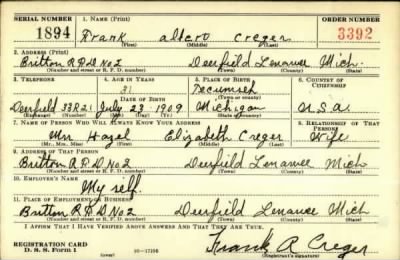 SERIAL NUMBER 1. NAME (Print) ORDER NUMBER
1894 Frank albert Creger 3392
(First) (Middle) (Last)
2. ADDRESS (Print)
Britton R.F.D No 2 Deerfield Lenawee Mich.
(Number and street or R. F. D. number) (Town) (County) (State)
3. TELEPHONE 4. AGE IN YEARS 5. PLACE OF BIRTH 6. COUNTRY OF CITIZENSHIP
31 Tecumseh
DATE OF BIRTH (Town or county)
Deerfield 33R21 July 23 1909 Michigan U.S.A.
(Exchange) (Number) (Mo.) (Day) (Yr.) (State or country)
7. NAME OF PERSON WHO WILL ALWAYS KNOW YOUR ADDRESS 8. RELATIONSHIP OF THAT PERSON
Mrs Hazel Elizabeth Creger Wife
(Mr., Mrs., Miss) (First) (Middle) (Last)
9. ADDRESS OF THAT PERSON
Britton R.F.D No 2 Deerfield Lenawee Mich
(Number and street or R. F. D. number) (Town) (County) (State)
10. EMPLOYER'S NAME
My self.
11. PLACE OF EMPLOYMENT OR BUSINESS
Britton R.F.D No 2 Deerfield Lenawee Mich
(Number and street or R. F. D. number) (Town) (County) (State)
I AFFIRM THAT I HAVE VERIFIED ABOVE ANSWERS AND THAT THEY ARE TRUE.
REGISTRATION CARD
D. S. S. Form 1 Frank A Creger
(Registrant's signature)